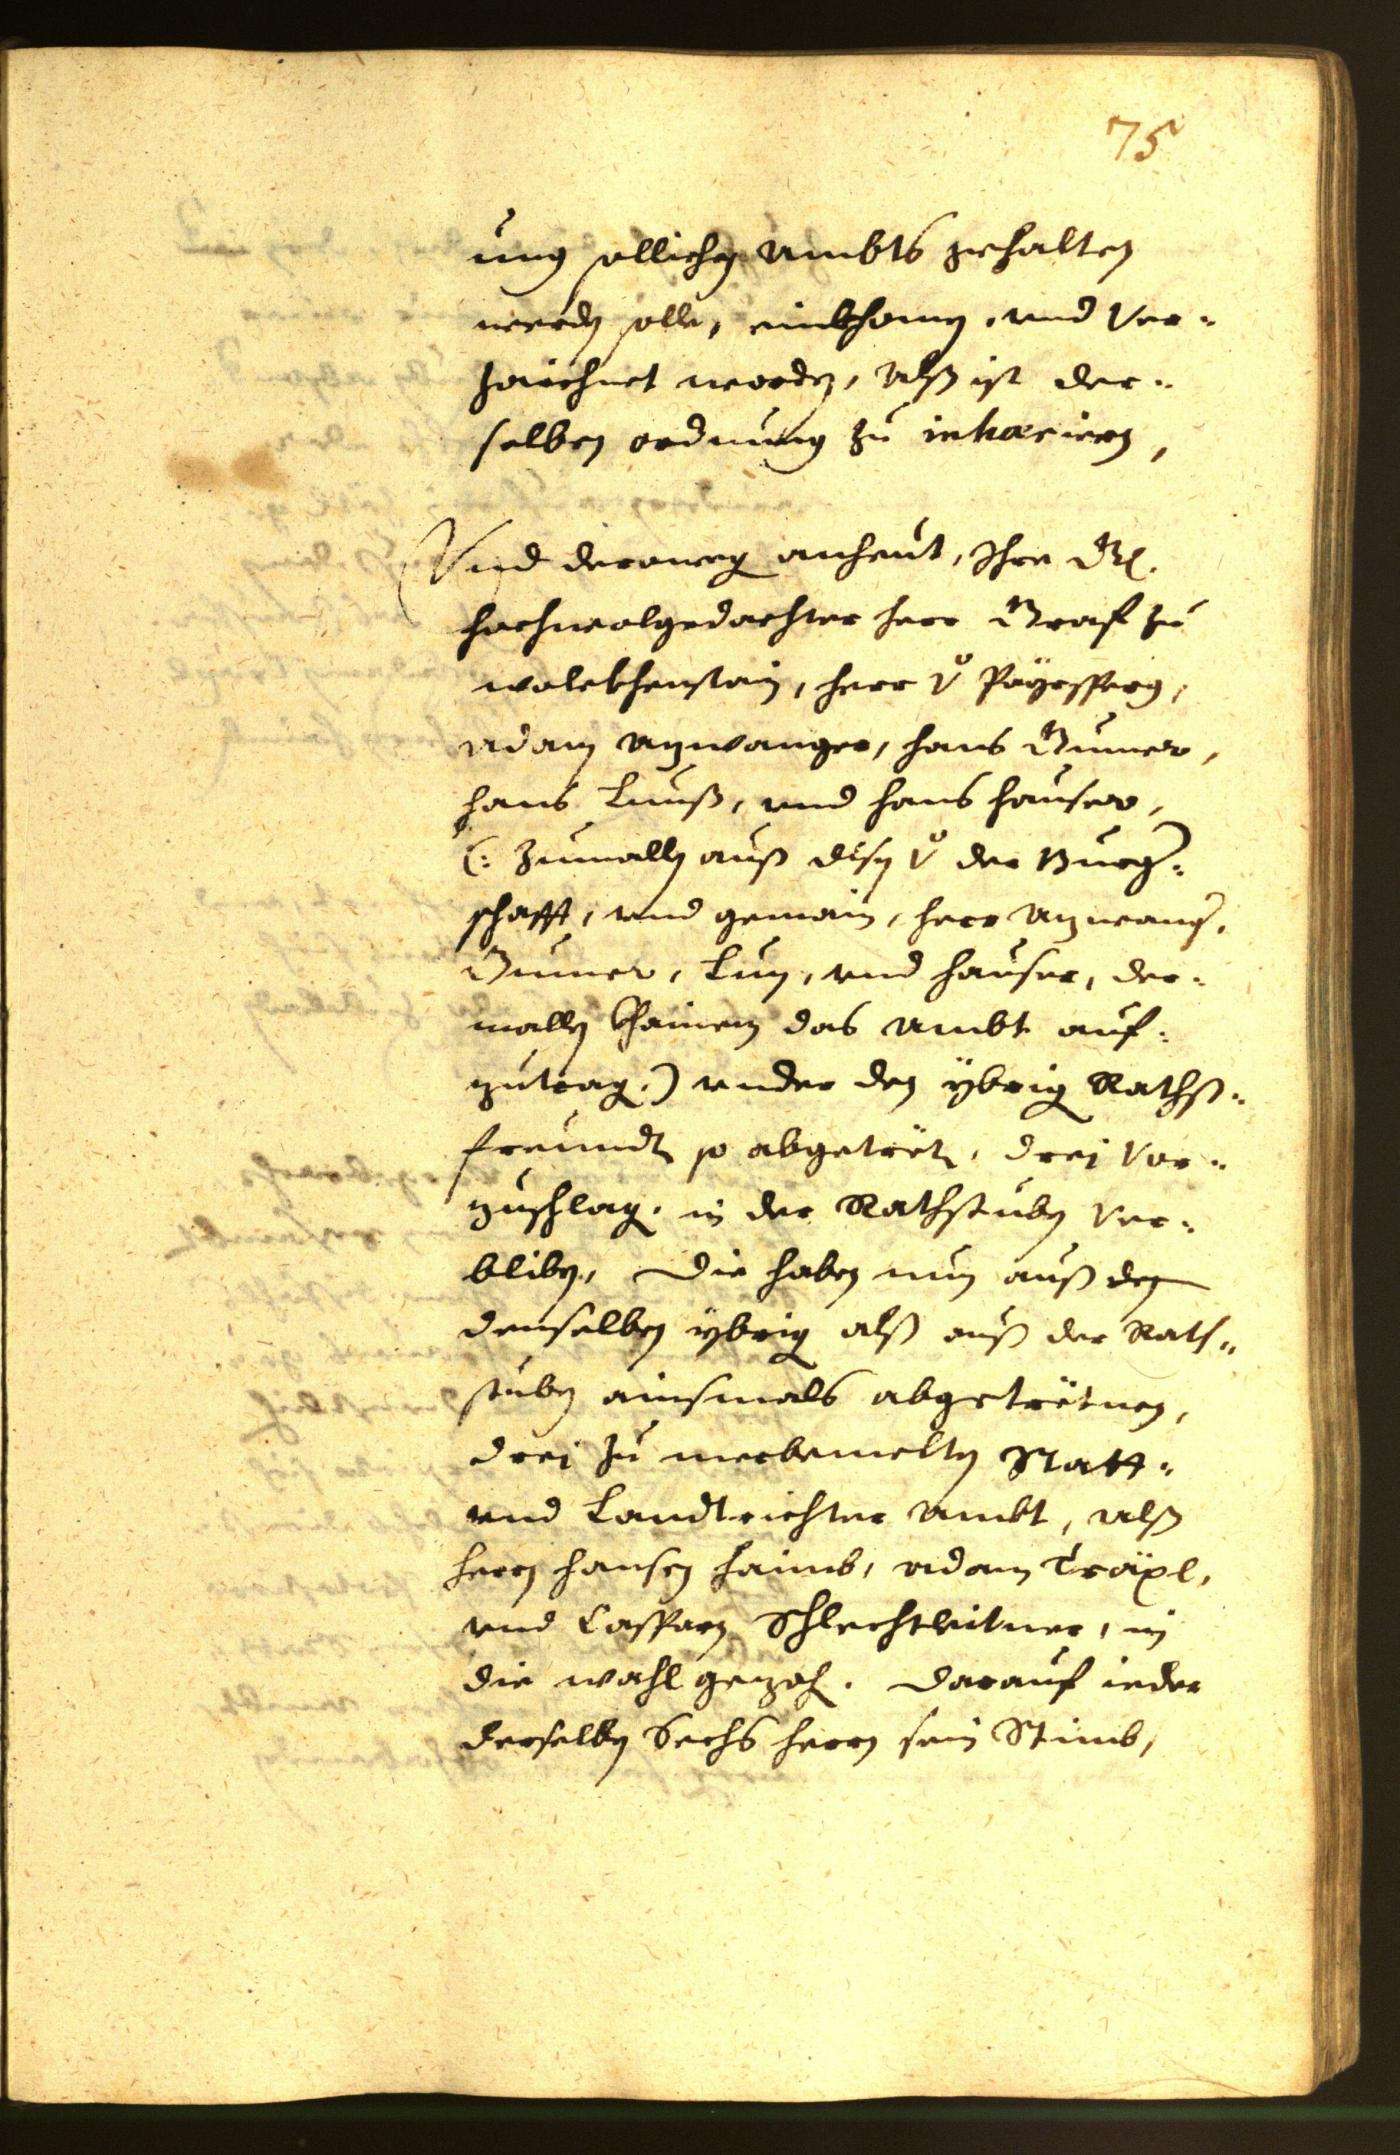 75
ung sollichen Ambts gehalten
werden solle, einkhomen, und Ver-
zaichnet worden, Alß ist der-
selben ordnung zu inhæriern,
Und derowegen anheut, Ihre Gn.
hochwolgedachter herr Graf zu
wolckhenstain, herr v. Payrsperg,
Adam Anwanger, hans Gumer,
hans Lunß, und hans hauser,
(: Zumallen auß disen v. der Burger-
schafft, und gemain, herr Anwang.
Gumer, Lun, und hauser, der-
mallen khainem das Ambt auf-
zutragen.) under den ybrigen Raths-
freundten so abgetreten, drei Vor-
zuschlagen, in der Rathstuben Ver-
bliben, Die haben nun auß den
denselben ybrigen alß auß der Rats-
stuben ainsmals abgetretnen,
drei zu merbemelten Statt-
und Landtrichter Ambt, Alß
herrn hansen haimb, Adam Träpl,
und Casparn Schlechtleitner, in
die wahl gezogen. Darauf ieder
derselben Sechs herrn sein Stimb,